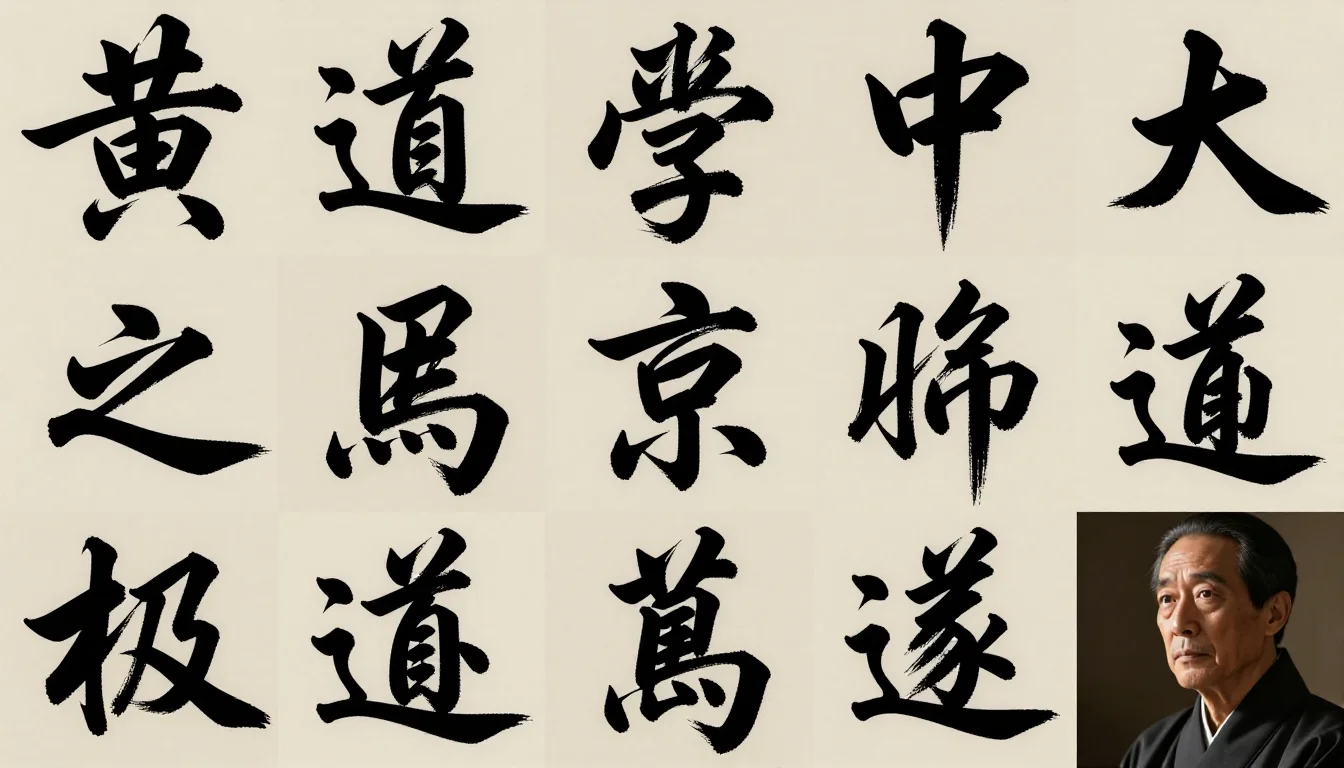 黄道学中大
之馬京道
极道萬遂